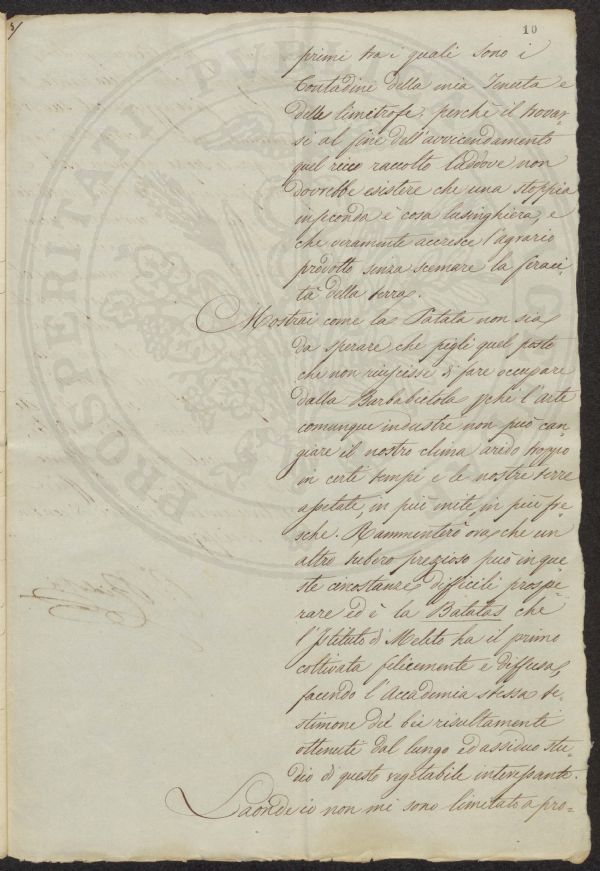 3/
10
primi tra i quali sono i
Contadini della mia Tenuta e
delle limitrofe perchè il trovar
si al fine dell'avvicendamento
quel ricco raccolto laddove non
dovrebbe esistere che una stoppia
infeconda è cosa lusinghiera, e
che veramente accresce l'agrario
prodotto senza scemare la feraci
tà della terra.
Mostrai come la Patata non sia
da sperare che pigli quel posto
che non riuscisse di fare occupare
dalla Barbabietola pche l'arte
comunque industre non può can
giare il nostro clima arido troppo
in certi tempi e le nostre terre
assetate, in più mite, in più fre
sche. Rammenterò ora che un
altro tubero prezioso può in que
ste circostanze difficili prospe
rare ed è la Batatas che
l'Istituto di Meleto ha il primo
coltivata felicemente e diffusa,
facendo l'Accademia stessa te
stimone dei bei risultamenti
ottenuti dal lungo ed assiduo stu
dio di questo vegetabile interessante.
Laonde io non mi sono limitato a pro=
PROSPERITATI PVBLICAE